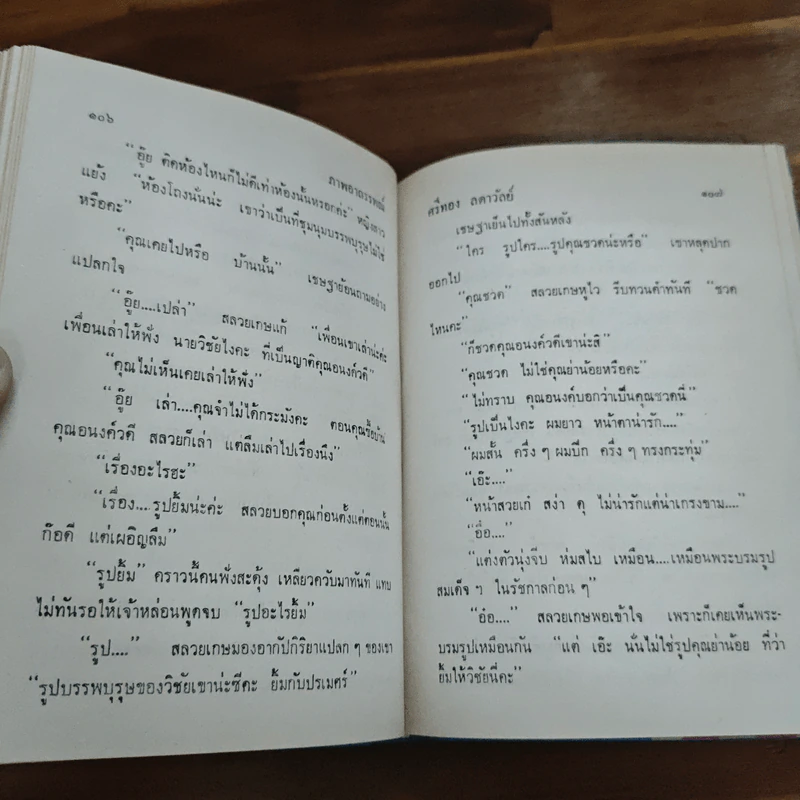 ๑๐๖
ภาพอาถรรพณ์
“อู๊ย ติดห้องไหนก็ไม่ดีเท่าห้องนั้นหรอกค่ะ” หญิงสาว
แย้ง “ห้องโถงนั่นน่ะ เขาว่าเป็นที่ชุมนุมบรรพบุรุษไม่ใช่
หรือคะ”
“คุณเคยไปหรือ บ้านนั้น” เชษฐาย้อนถามอย่าง
แปลกใจ
“อู๊ย....เปล่า” สลวยเกษแก้ “เพื่อนเขาเล่าน่ะค่ะ
เพื่อนเล่าให้ฟัง นายวิชัยไงคะ ที่เป็นญาติคุณอนงค์วดี”
“คุณไม่เห็นเคยเล่าให้ฟัง”
“อู๊ย เล่า....คุณจำไม่ได้กระมังคะ ตอนคุณซื้อบ้าน
คุณอนงค์วดี สลวยก็เล่า แต่ลืมเล่าไปเรื่องนึง”
“เรื่องอะไรฮะ”
“เรื่อง....รูปยิ้มน่ะค่ะ สลวยบอกคุณก่อนตั้งแต่ตอนนั้น
ก๊อดี แต่เผอิญลืม”
“รูปยิ้ม” คราวนี้คนฟังสะดุ้ง เหลียวควับมาทันที แทบ
ไม่ทันรอให้เจ้าหล่อนพูดจบ “รูปอะไรยิ้ม”
“รูป....” สลวยเกษมองอากัปกิริยาแปลก ๆ ของเขา
“รูปบรรพบุรุษของวิชัยเขาน่ะซีคะ ยิ้มกับปรเมศร์”
ศรีทอง ลดาวัลย์
๑๐๗
เชษฐาเย็นไปทั้งสันหลัง
“ใคร รูปใคร....รูปคุณชวดน่ะหรือ” เขาหลุดปาก
ออกไป
“คุณชวด” สลวยเกษหูไว รีบทวนคำทันที “ชวด
ไหนคะ”
“ก็ชวดคุณอนงค์วดีเขาน่ะสิ”
“คุณชวด ไม่ใช่คุณย่าน้อยหรือคะ”
“ไม่ทราบ คุณอนงค์บอกว่าเป็นคุณชวดนี่”
“รูปเป็นไงคะ ผมยาว หน้าตาน่ารัก....”
“ผมสั้น ครึ่ง ๆ ผมปีก ครึ่ง ๆ ทรงกระทุ่ม”
“เอ๊ะ....”
“หน้าสวยเก๋ สง่า ดุ ไม่น่ารักแต่น่าเกรงขาม....”
“อื่อ....”
“แต่งตัวนุ่งจีบ ห่มสไบ เหมือน....เหมือนพระบรมรูป
สมเด็จ ฯ ในรัชกาลก่อน ๆ”
“อ๋อ....” สลวยเกษพอเข้าใจ เพราะก็เคยเห็นพระ-
บรมรูปเหมือนกัน “แต่ เอ๊ะ นั่นไม่ใช่รูปคุณย่าน้อย ที่ว่า
ยิ้มให้วิชัยนี่คะ”